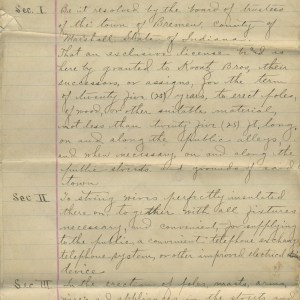 Sec. I. Be it resolved by the board of trustees
of the town of Bremen, County of
Marshall State of Indiana.
That an exclusive license be & is
hereby granted to Bros, their
successors or assigns, for the term
of twenty five (25) years, to erect poles,
of wood, or other suitable material,
not less than twenty five (25) ft, long
on and along the public alleys,
and when necessary on and along the
public streets and grounds of said
town.
Sec II To string wires perfectly insulated
there on together with all fixtures
necessary, and convenient, for supplying
to the public a convenient telephone exchange,
telephone system, or other improved electrical
devices.
Sec III. In the erection of poles, masts, arms,
wires and appliances in the streets or